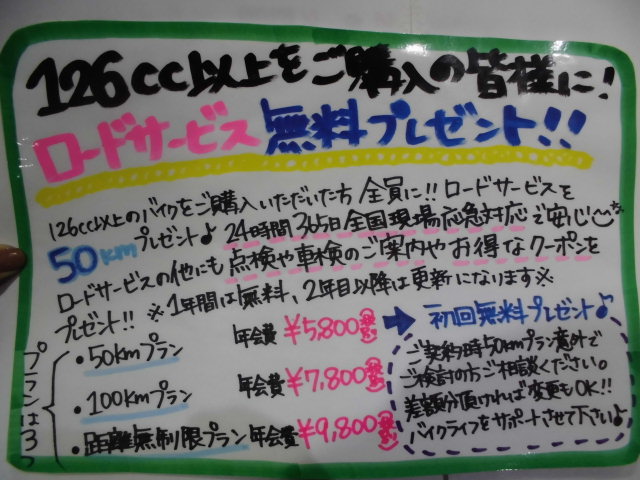 126cc以上をご購入の皆様に!
ロードサービス無料プレゼント!!
126cc以上のバイクをご購入いただいた方 全員に!! ロードサービスを
50kmプレゼント♪ 24時間365日全国現場応急対応で安心
ロードサービスの他にも 点検や車検のご案内や お得なクーポンを
プレゼント!! ※1年間は無料、2年目以降は更新になります※
プランは3つ
・50kmプラン 年会費 ¥5,800 → 初回無料プレゼント♪
・100kmプラン 年会費 ¥7,800
・距離無制限プラン 年会費 ¥9,800
ご契約時50kmプラン意外で
ご検討の方ご相談ください。
差額分頂ければ変更もOK!!
バイクライフをサポートさせて下さい♪